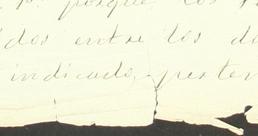 porque los
dos entre los de
indicado, perten